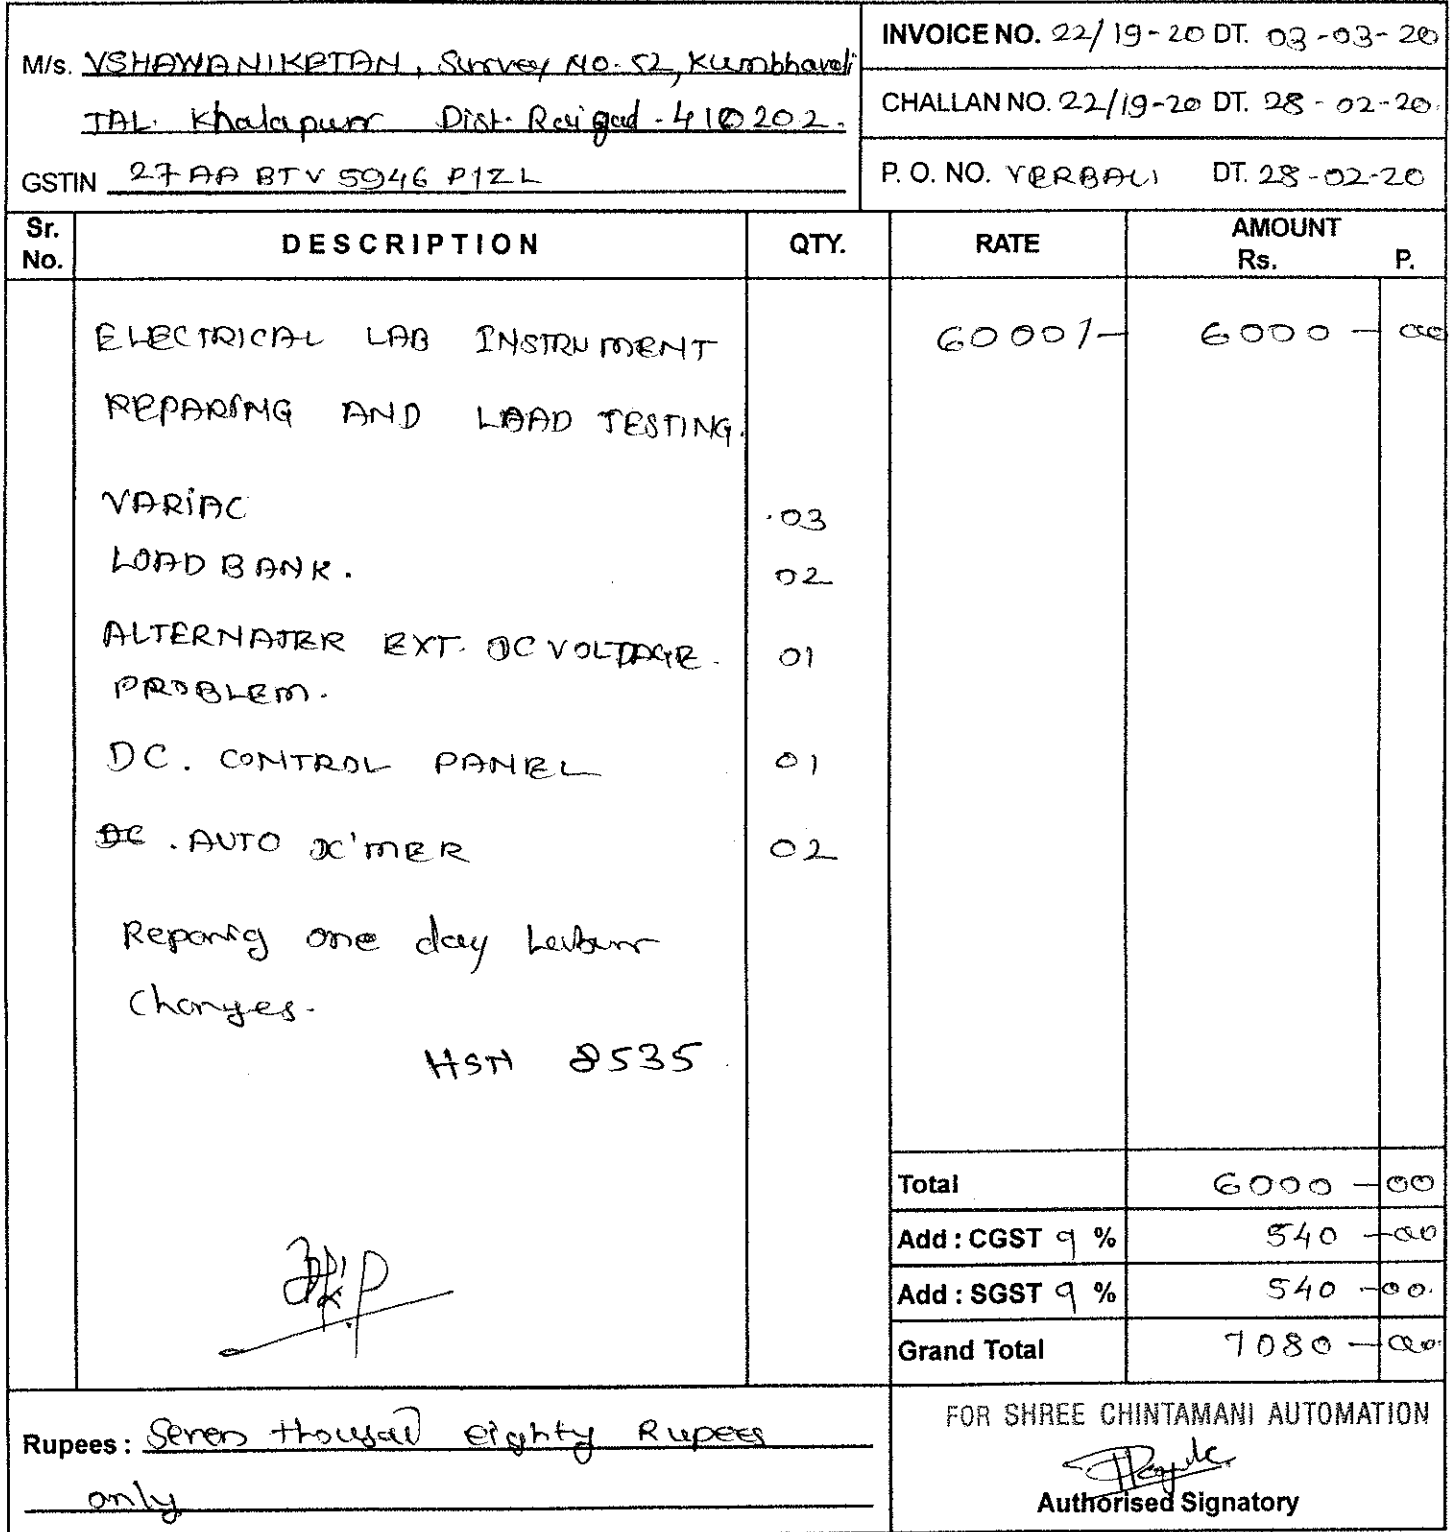 M/s. VSHAWANIKETAN, Survey NO. 52, Kumbhavali
TAL. Khalapur Dist. Raigad - 410202.
GSTIN 27 AA BTV 5946 P1ZL
INVOICE NO. 22/19-20 DT. 03-03-20
CHALLAN NO. 22/19-20 DT. 28-02-20
P. O. NO. VERBALI DT. 28-02-20
Sr. No. DESCRIPTION QTY. RATE AMOUNT Rs. P.
ELECTRICAL LAB INSTRUMENT 6000/- 6000 - 00
REPARING AND LOAD TESTING.
VARIAC 03
LOAD BANK. 02
ALTERNATER EXT. DC VOLTAGE. 01
PROBLEM.
DC. CONTROL PANEL 01
. AUTO X'MER 02
Reparing one day Labour
Charges.
HSN 8535
Total 6000 - 00
Add : CGST 9 % 540 - 00
Add : SGST 9 % 540 - 00.
Grand Total 7080 - 00
Rupees : Seven thousad eighty Rupees
only
FOR SHREE CHINTAMANI AUTOMATION
Authorised Signatory